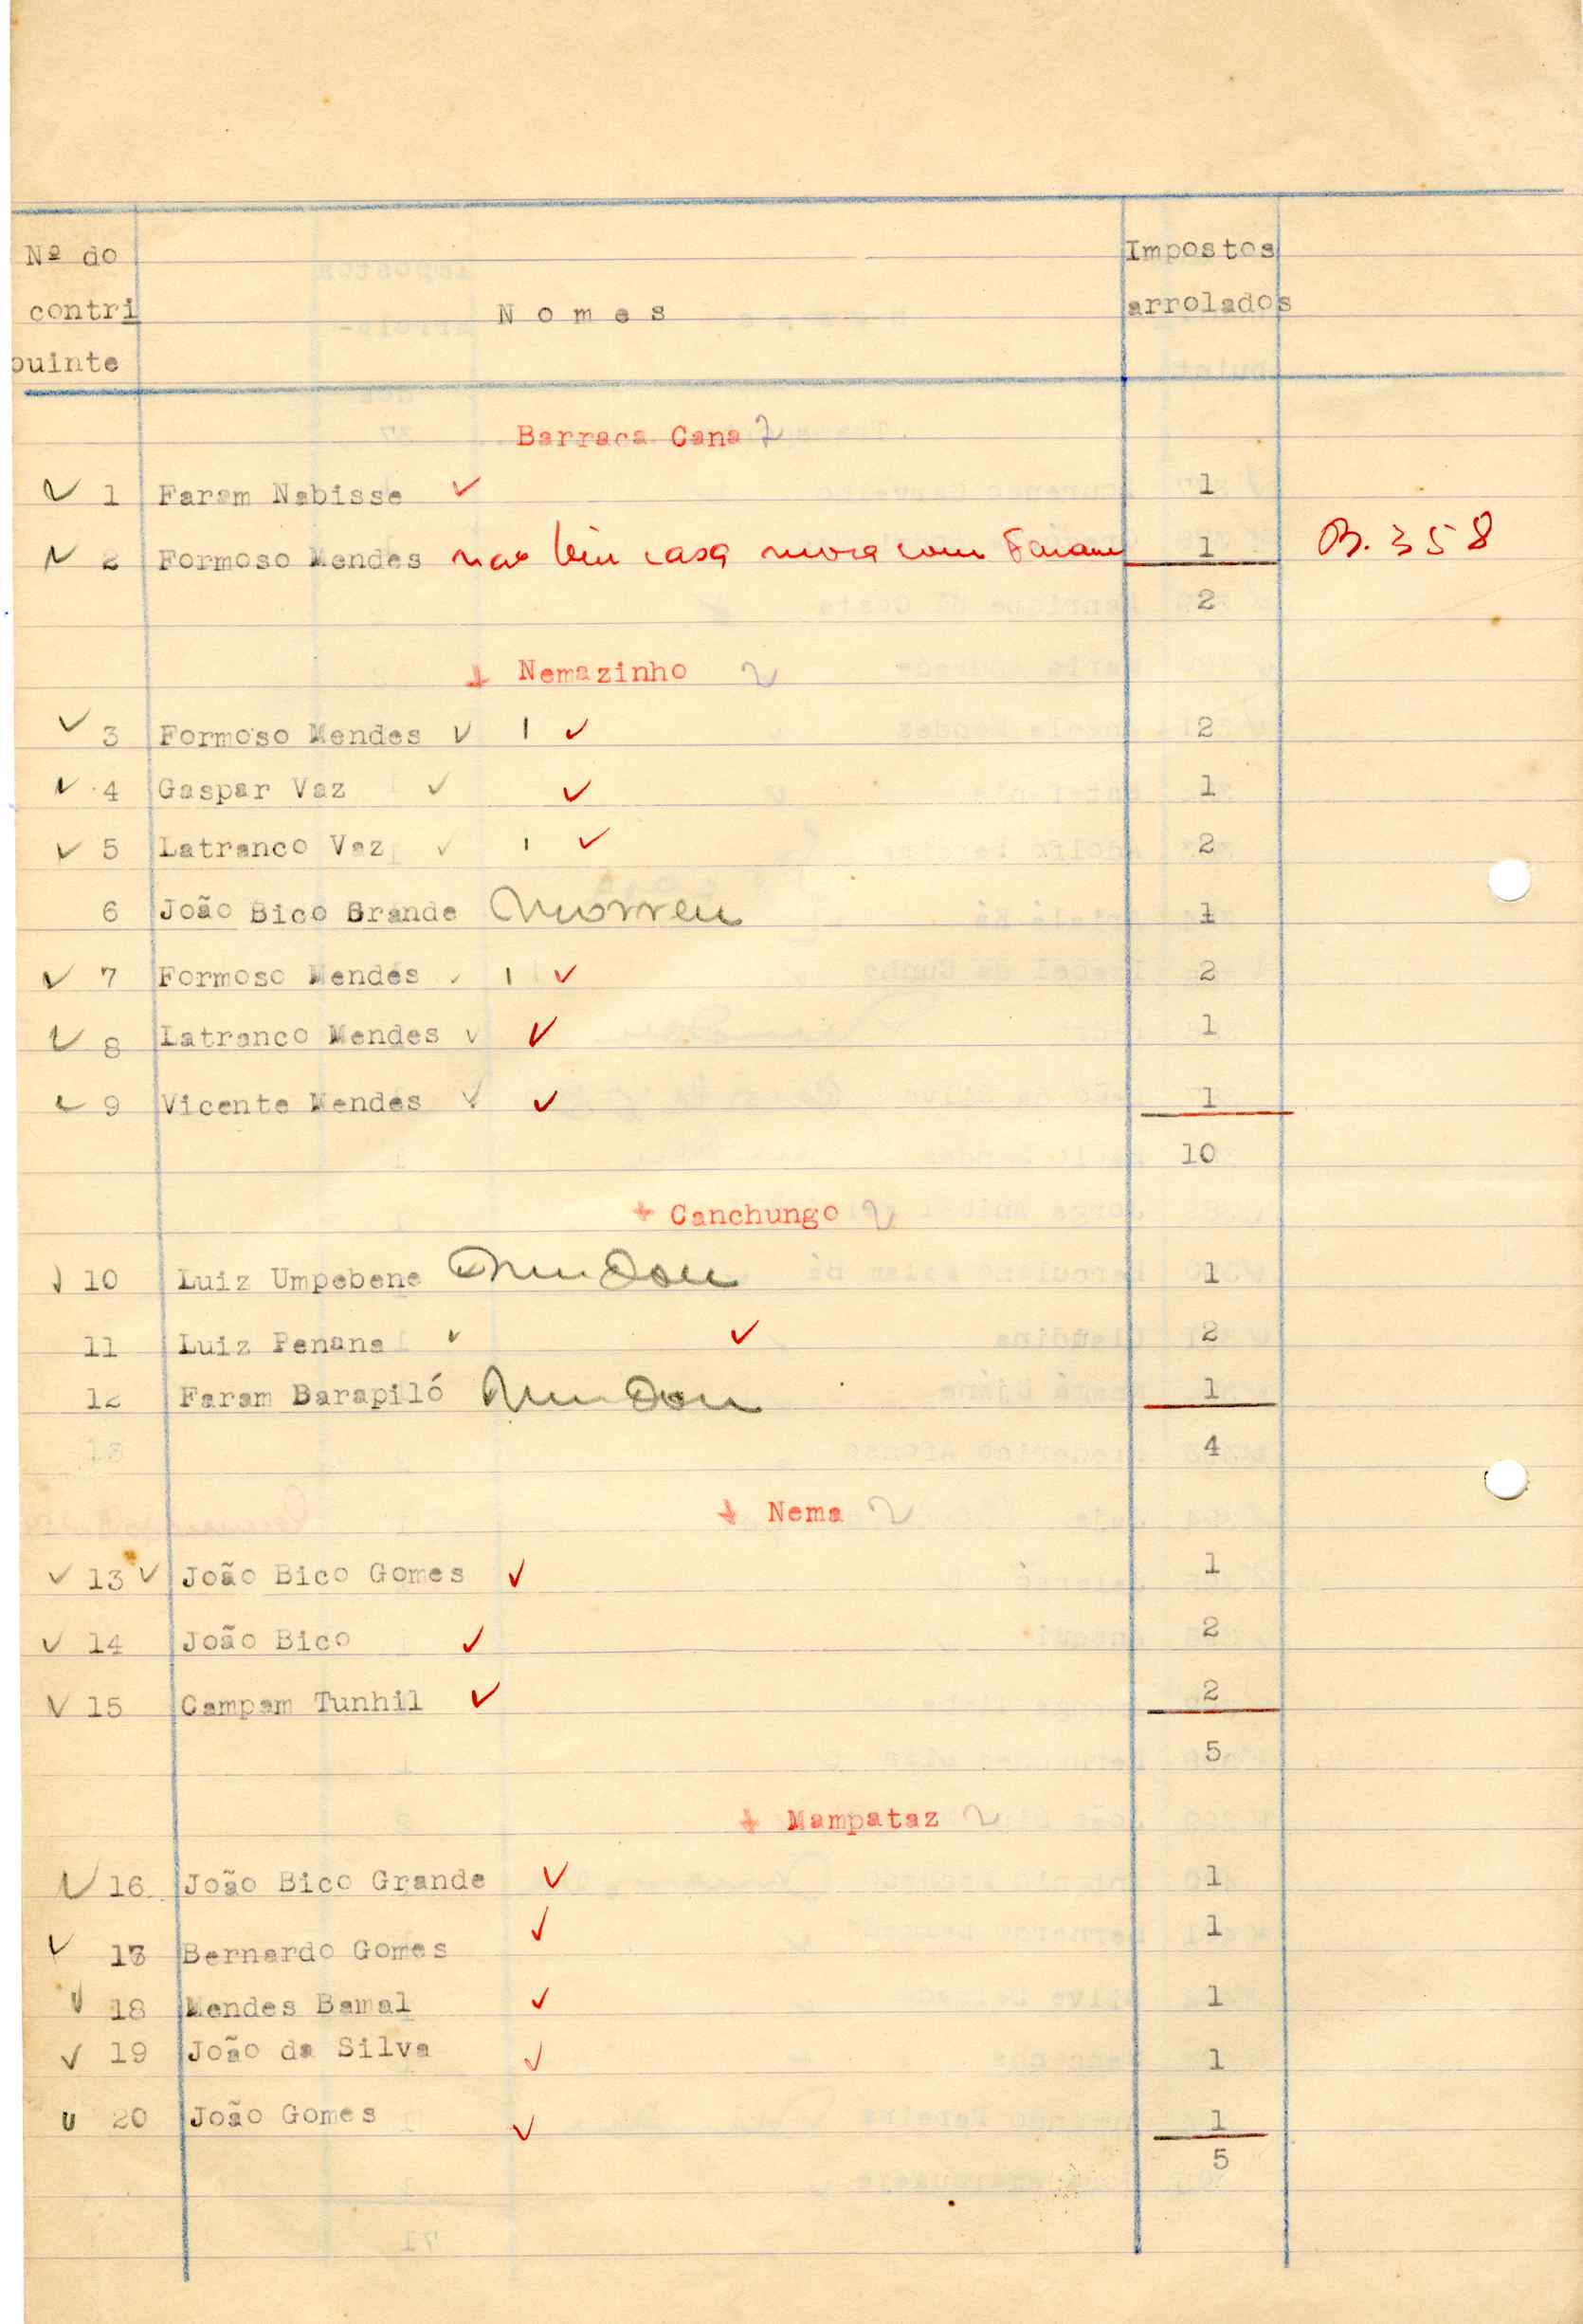 Nº do Impostos
contri N o m e s arrolados
buinte
Barraca Cana
1 Faram Nabisse 1
2 Formoso Mendes nao tem casa mora com Faram 1 B. 358
2
Nemazinho
3 Formoso Mendes 1 2
4 Gaspar Vaz 1
5 Latranco Vaz 1 2
6 João Bico Grande Morreu 1
7 Formoso Mendes 1 2
8 Latranco Mendes 1
9 Vicente Mendes 1
10
Canchungo
10 Luiz Umpebene Mudou 1
11 Luiz Penana 2
12 Faram Barapiló Mudou 1
13 4
Nema
13 João Bico Gomes 1
14 João Bico 2
15 Campam Tunhil 2
5
Mampataz
16 João Bico Grande 1
17 Bernardo Gomes 1
18 Mendes Bamal 1
19 João da Silva 1
20 João Gomes 1
5